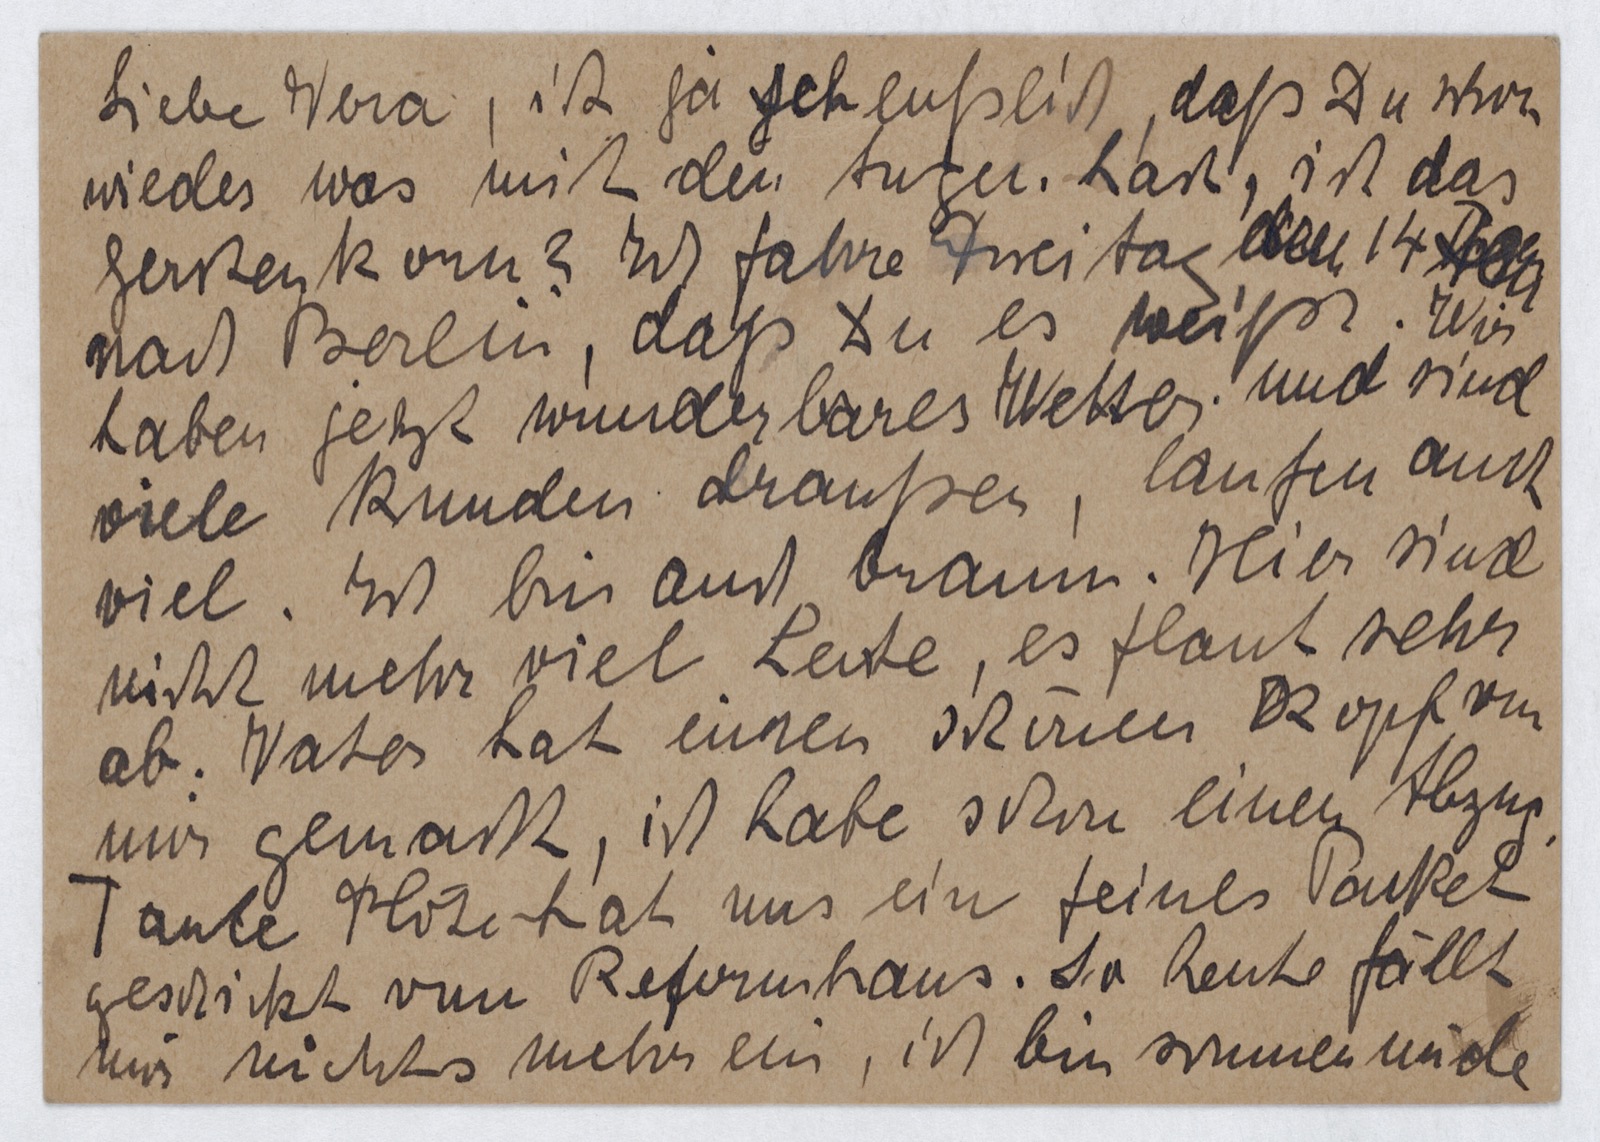 Liebe Vera, ist ja scheußlich, daß Du schon
wieder was mit den Augen hast, ist das
Gerstenkorn? Ich fahre Freitag den 14
nach Berlin, daß Du es weißt. Wir
haben jetzt wunderbares Wetter und sind
viele Stunden draußen, laufen auch
viel. Ich bin auch braun. Hier sind
nicht mehr viel Leute, es flaut sehr
ab. Vater hat einen schönen Kopf von
mir gemacht, ich habe schon einen Abzug.
Tante hat uns ein feines Packet
geschickt vom Reformhaus. So heute fällt
mir nichts mehr ein, ich bin sonnenmüde